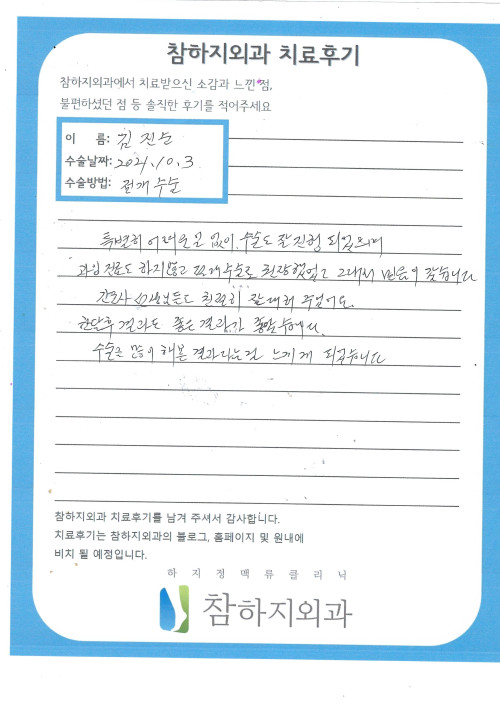 참하지외과 치료후기
참하지외과에서 치료받으신 소감과 느낀 점,
불편하셨던 점 등 솔직한 후기를 적어주세요
이 름: 김진순
수술날짜: 2021.10.3
수술방법: 절개수술
특별히 어려운일 없이 수술도 잘 진행 되었으며
과잉진료도 하지않고 수술로 그래서 믿음이 갔습니다
간호사 친절히 잘대해 주셨어요.
결과도 좋은결과가
수술은 많이 해본 결과라는걸 느끼게 되었습니다
참하지외과 치료후기를 남겨 주셔서 감사합니다.
치료후기는 참하지외과의 블로그, 홈페이지 및 원내에
비치 될 예정입니다.
하지정맥류클리닉
참하지외과